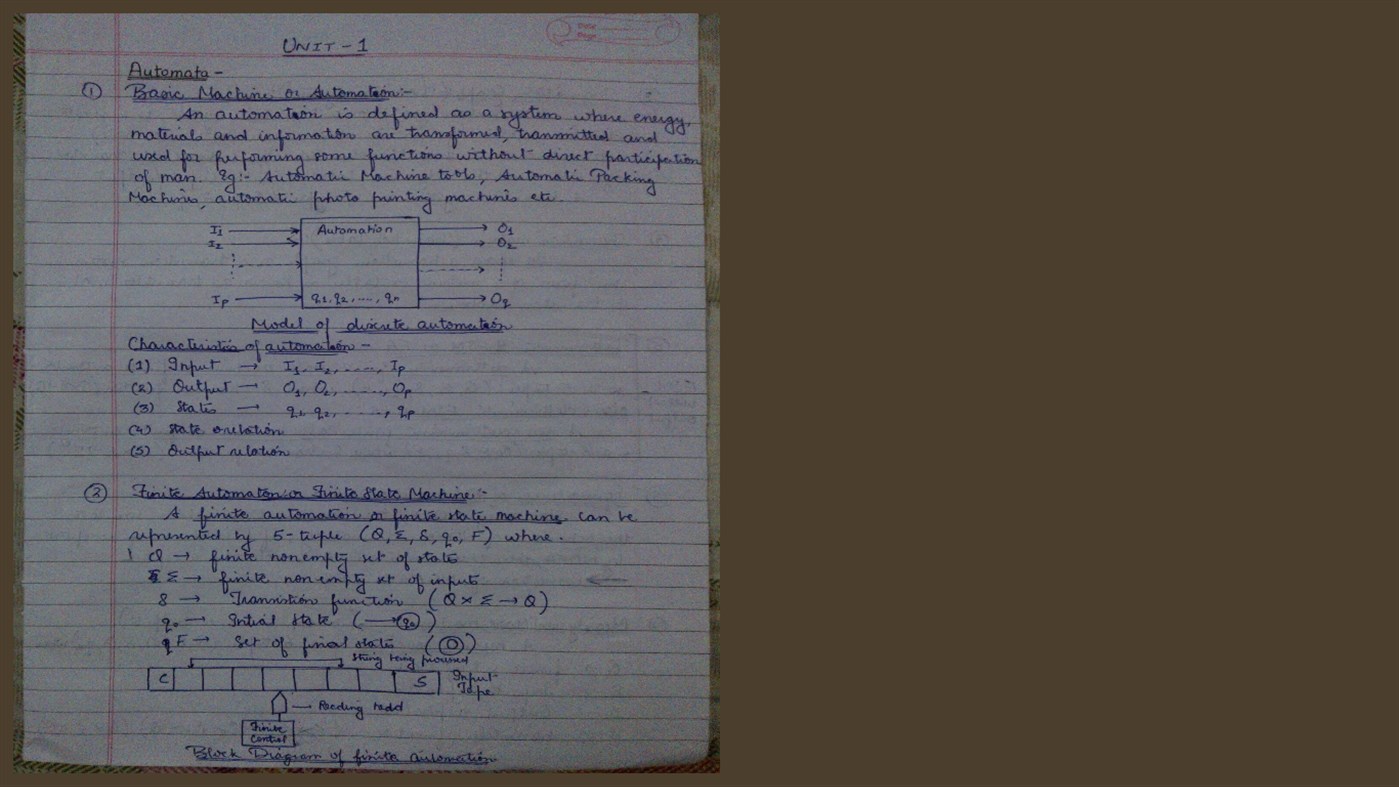 UNIT-1
Automata-
① Basic Machine or Automation:-
An automation is defined as a system where energy,
materials and information are transformed, transmitted and
used for performing some functions without direct participation
of man. Eg:- Automatic Machine tools, Automatic Packing
Machines, automatic photo printing machines etc.
I1 Automation O1
I2 O2
Ip q1, q2, ....., qn Oq
Model of discrete automation
Characteristics of automation -
(1) Input → I1, I2, ......, Ip
(2) Output → O1, O2, ......, Op
(3) States → q1, q2, ......, qp
(4) State relation
(5) Output relation
② Finite Automaton or Finite State Machine:-
A finite automation or finite state machine can be
represented by 5-tuple (Q, Σ, δ, q0, F) where.
Q → finite nonempty set of state
Σ → finite nonempty set of inputs
δ → Transistion function (Q × Σ → Q)
q0 → Initial state (→ q0)
F → Set of final states (O)
String being processed
C S Input
Tape
Reading head
Finite
Control
Block Diagram of finite automation